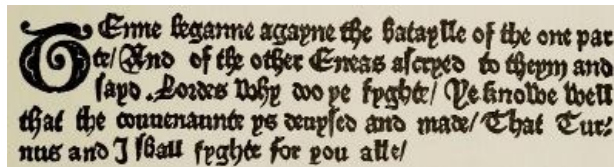 TEnne beganne agayne the bataylle of the one par
te/ And of the other Eneas ascryed to theym and
sayd. Lordes why doo ye fyghte/ Ye knowe well
that the couuenaunte ys deuysed and made/ That Tur⸗
nus and I shall fyghte for you alle/